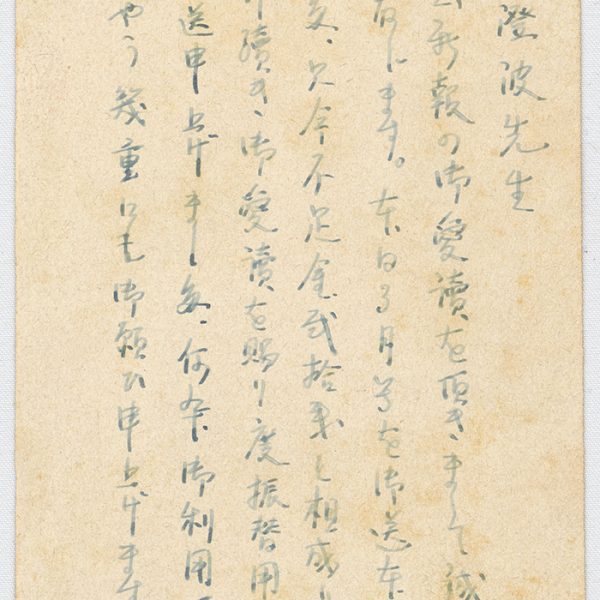 澄波先生
新報の御愛讀を頂きまして誠
じます。本日る月号を御送本
只今不足金弐拾銭と相成り
續き御愛讀を賜り度振替用
送申上げまし 何卒御利用
やう幾重にも御願ひ申上げます